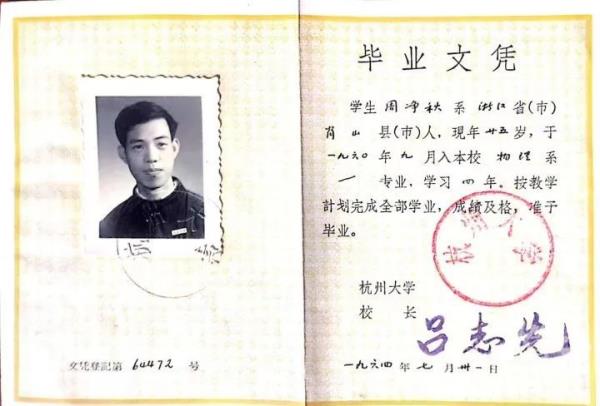 毕业文凭
学生 周净秋 系 浙江 省(市)
肖山 县(市)人，现年 廿五 岁，于
一九六〇年 九 月入本校 物理 系
一 专业，学习 四 年。按教学
計划完成全部学业，成绩及格，准予
毕业。
杭州大学
校 长
吕志先
一九六四年 七 月 卅一 日
杭州大学
文凭登記第 64472 号
杭